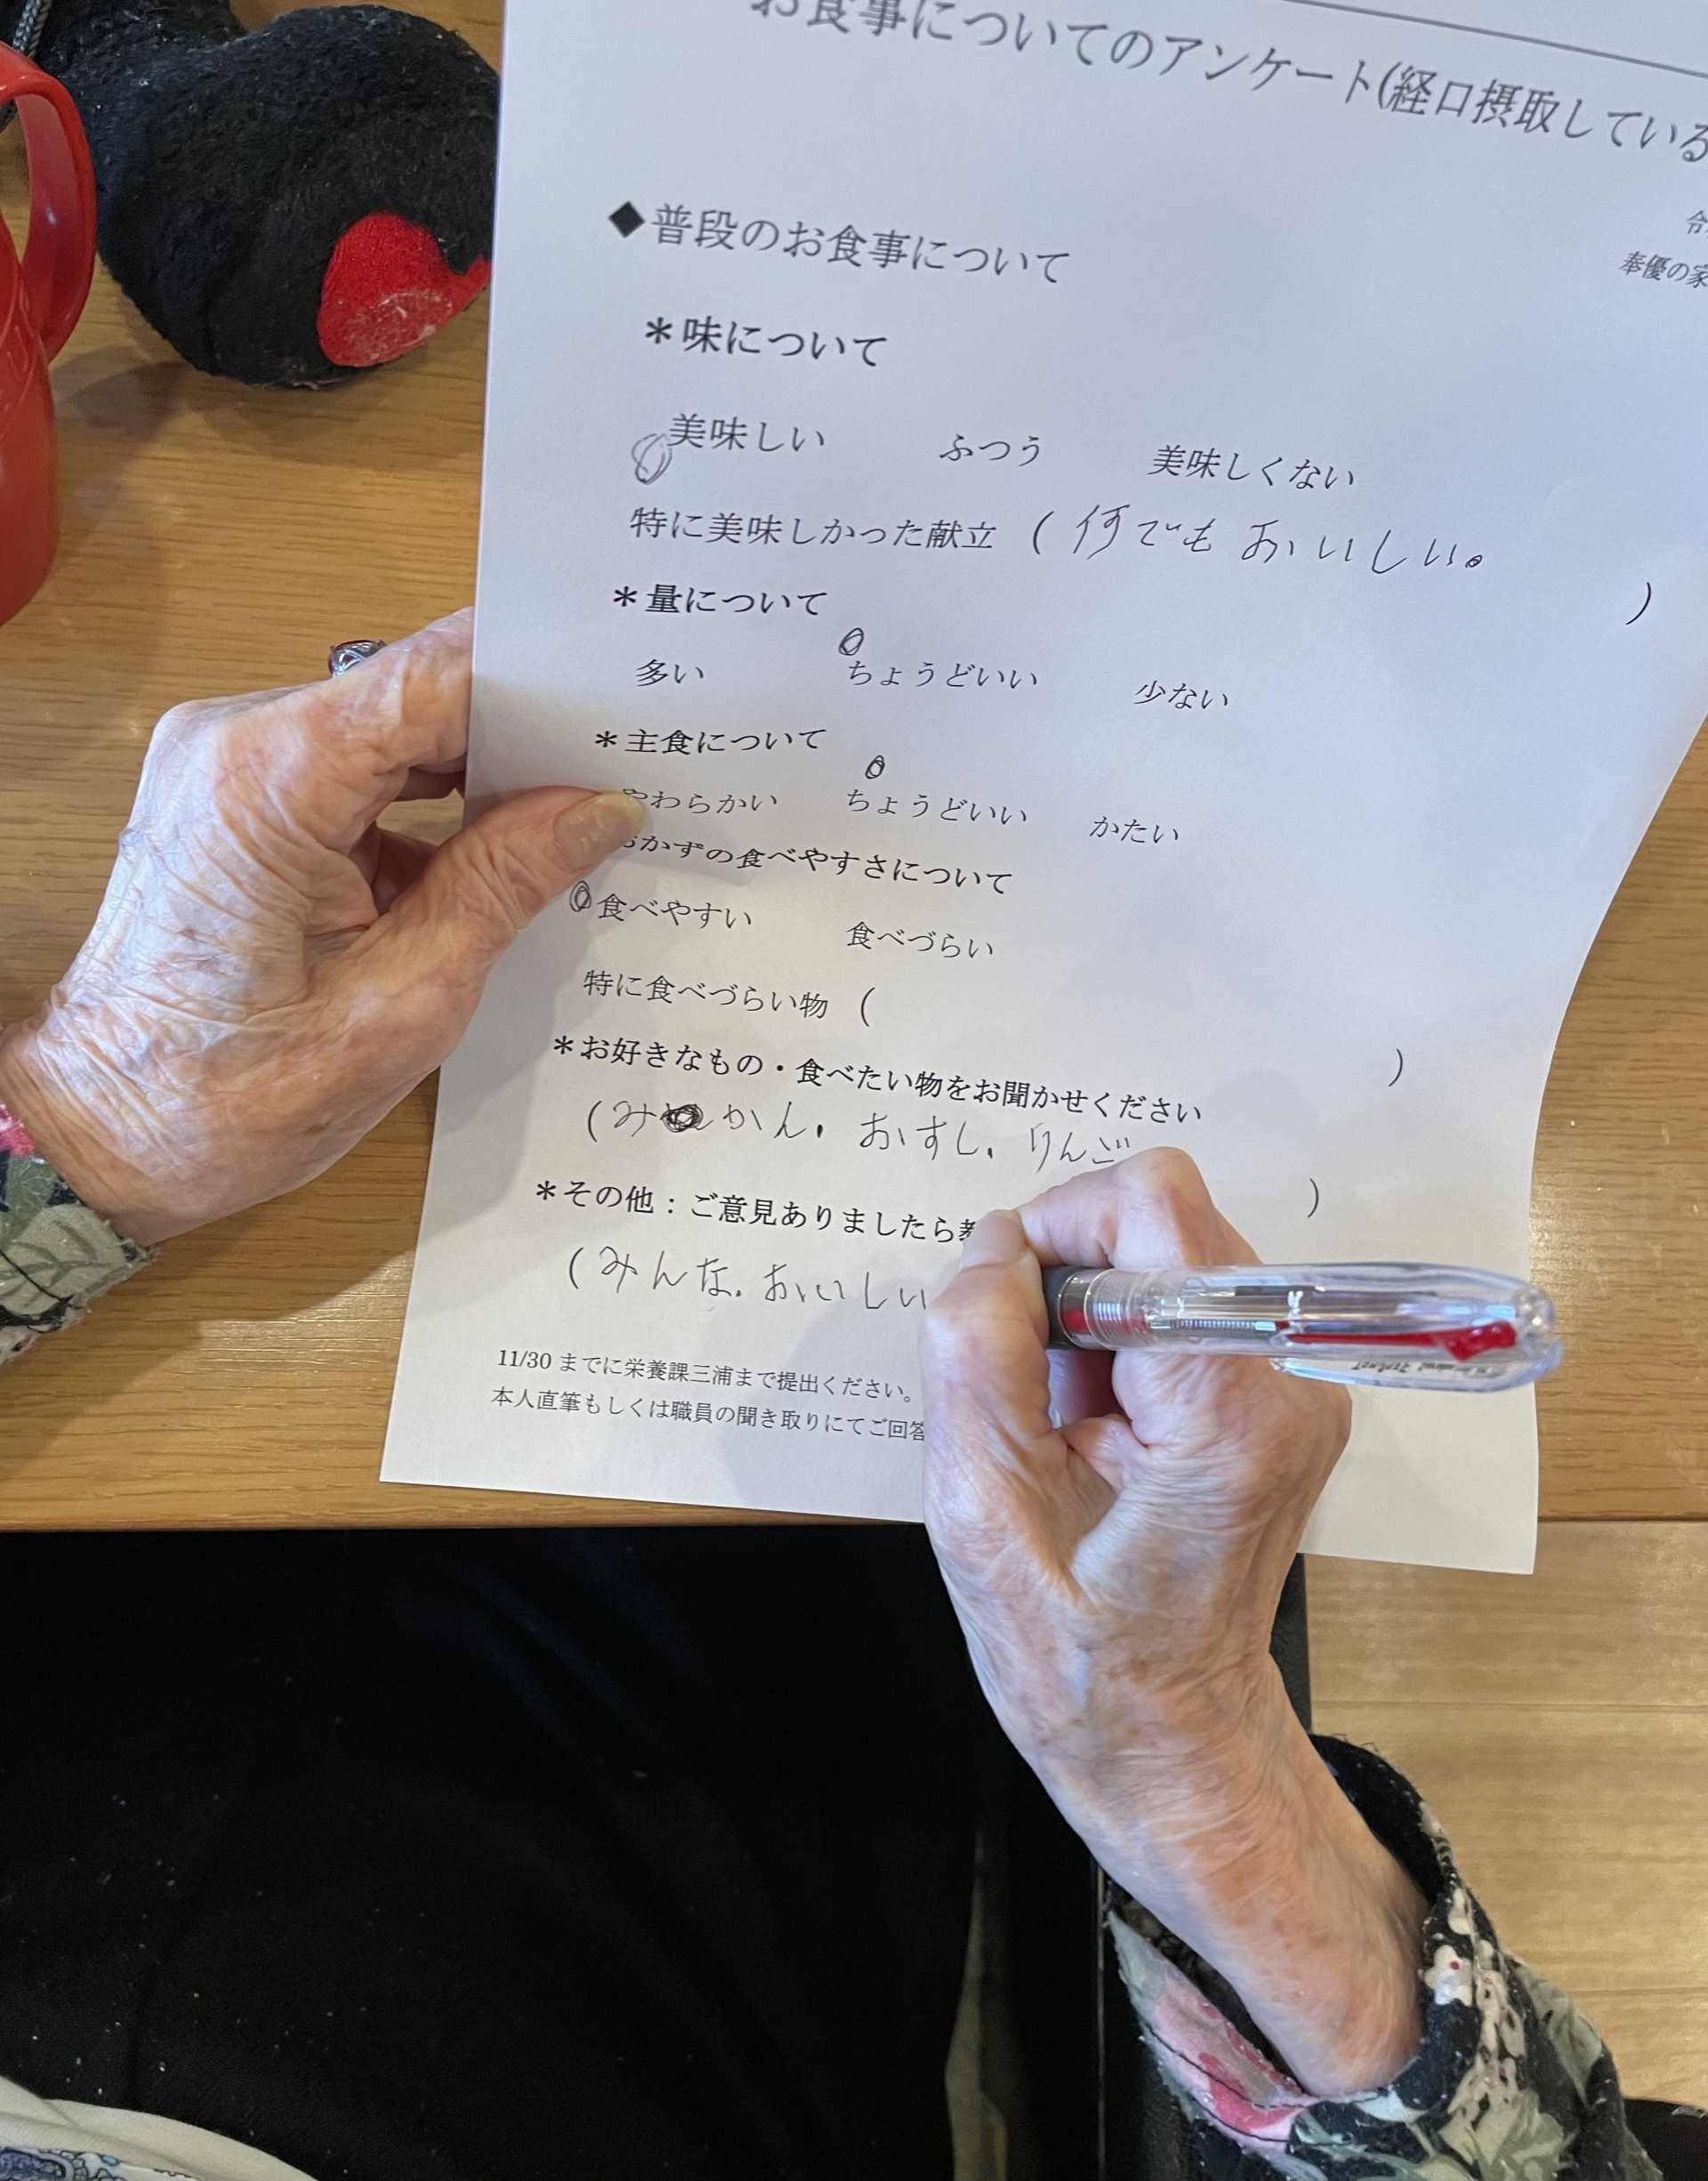 お食事についてのアンケート(経口摂取している
令
奉優の家
◆普段のお食事について
＊味について
美味しい ふつう 美味しくない
特に美味しかった献立 ( 何でもおいしい。 )
＊量について
多い ちょうどいい 少ない
＊主食について
やわらかい ちょうどいい かたい
おかずの食べやすさについて
食べやすい 食べづらい
特に食べづらい物 ( )
＊お好きなもの・食べたい物をお聞かせください
(みかん、おすし、りんご )
＊その他：ご意見ありましたら
(みんな、おいしい
11/30 までに栄養課三浦まで提出ください。
本人直筆もしくは職員の聞き取りにてご回答